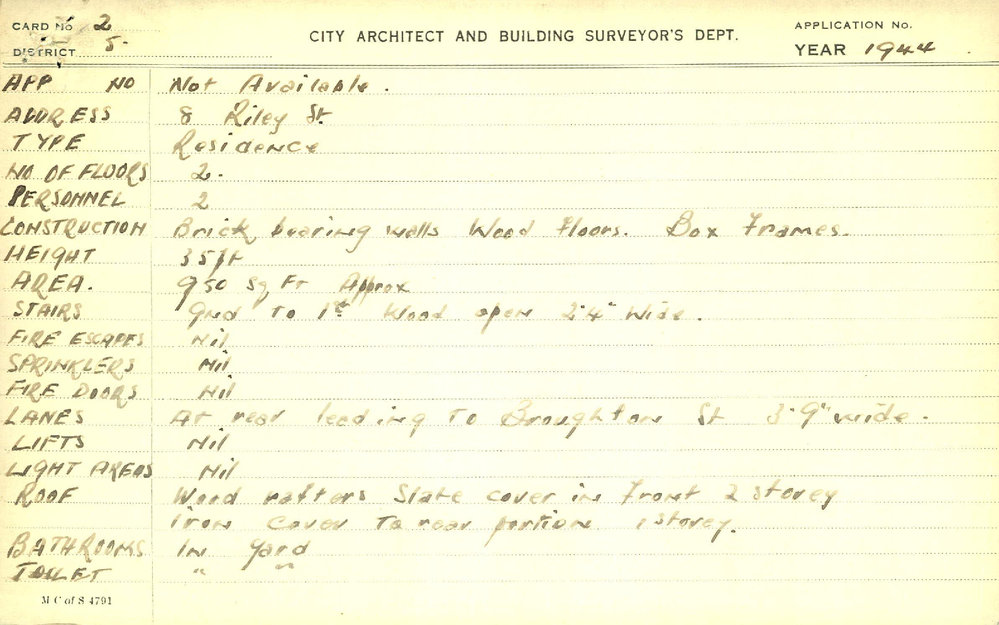 CARD No 2
DISTRICT 5.
CITY ARCHITECT AND BUILDING SURVEYOR'S DEPT.
APPLICATION No.
YEAR 1944
APP NO Not Available.
ADDRESS 8 Riley St.
TYPE Residence
NO OF FLOORS 2.
PERSONNEL 2
CONSTRUCTION Brick bearing walls Wood Floors. Box Frames.
HEIGHT 35ft
AREA. 950 Sq Ft Approx
STAIRS Gnd To 1st Wood open 2'4" Wide.
FIRE ESCAPES Nil
SPRINKLERS Nil
FIRE DOORS Nil
LANES At rear leading To Broughton St 3'9" wide.
LIFTS Nil
LIGHT AREAS Nil
ROOF Wood rafters Slate cover in front 2 storey
iron cover To rear portion 1 storey.
BATHROOMS In Yard
TOILET " "
M C of S 4791